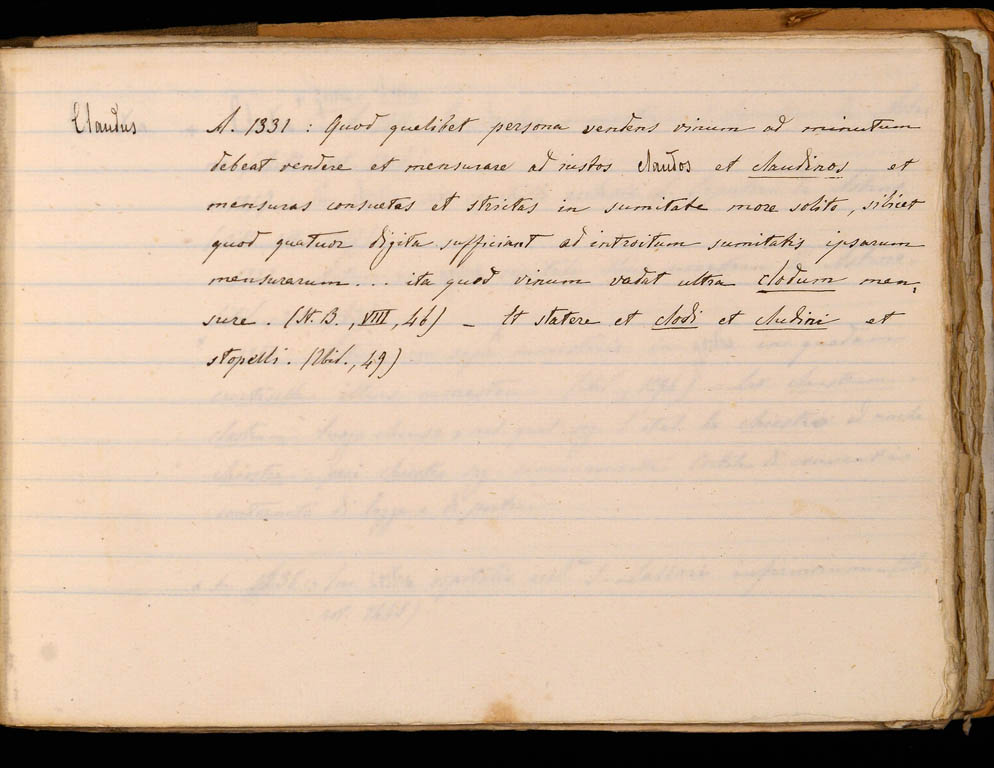 Claudus
A. 1331 : Quod quelibet persona vendens vinum ad minutum
debeat vendere et mensurare ad iustos claudos et claudinos et
mensuras consuetas et strictas in sumitate more solito, silicet
quod quatuor digita sufficiant ad introitum sumitatis ipsarum
mensurarum... ita quod vinum vadat ultra clodum men,
sure. (St. B., VIIII, 46) _ It statere et clodi et cludini et
stopelli. (Ibid., 49)